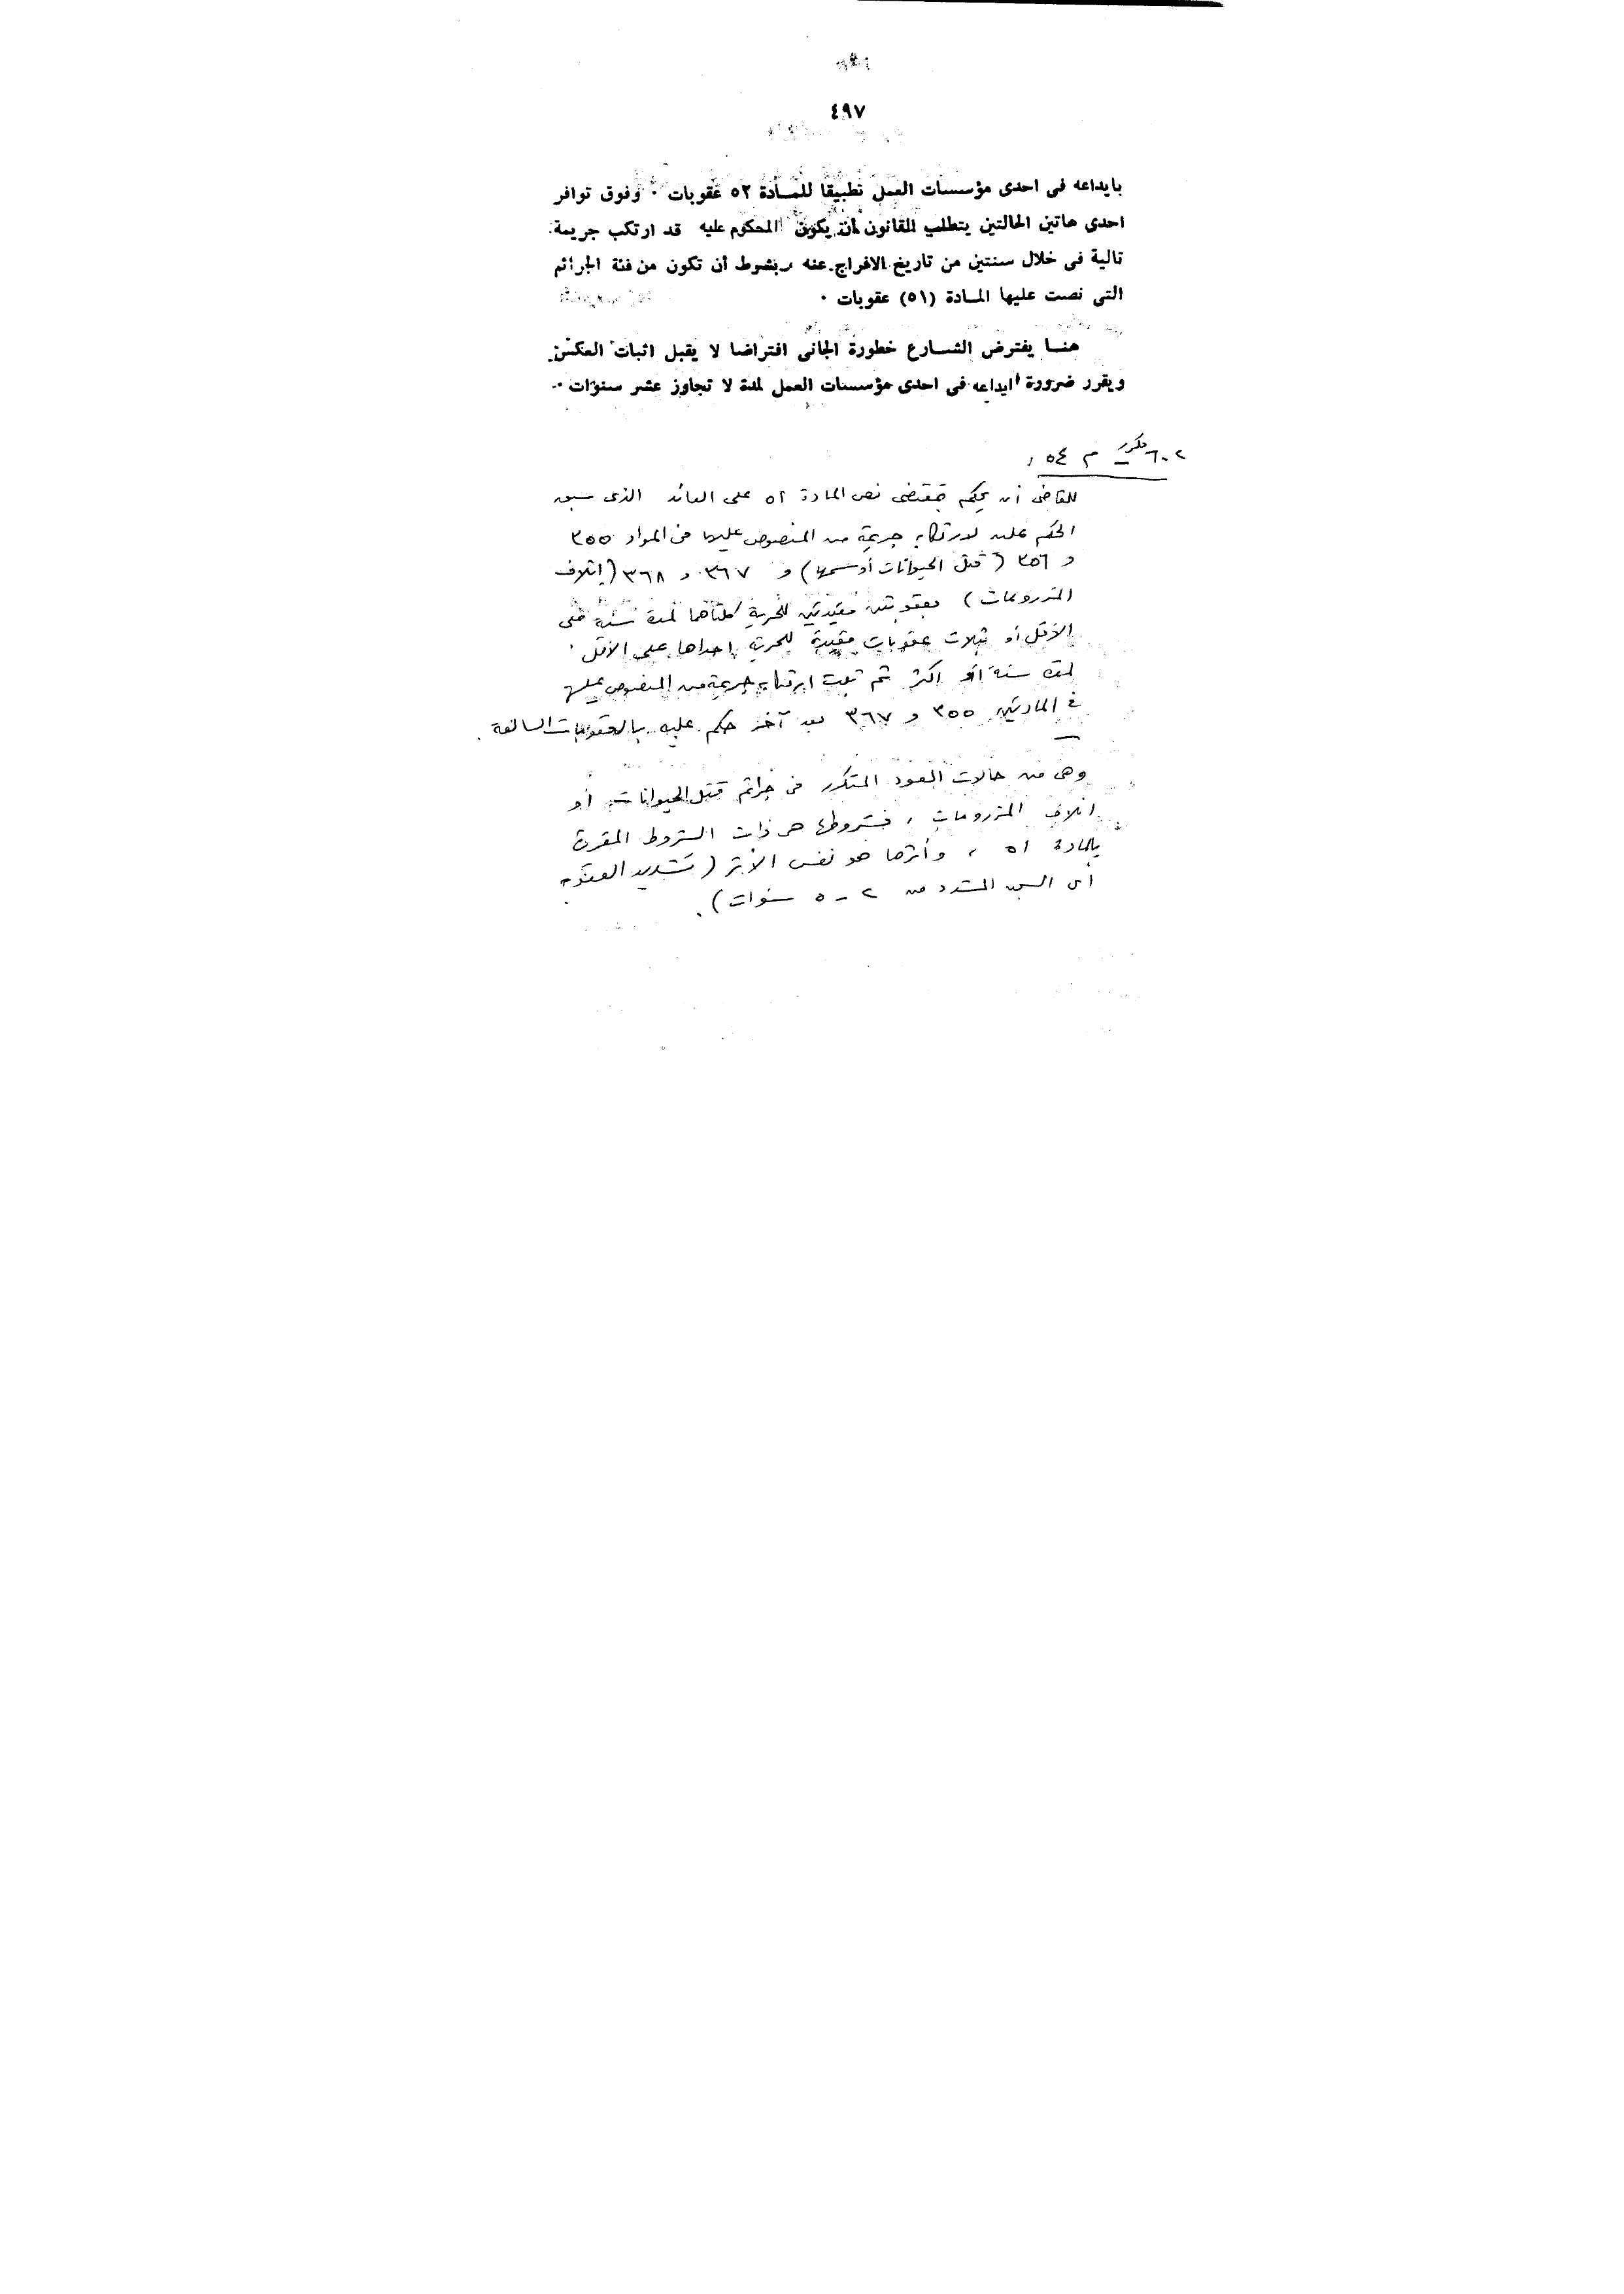 ٤٩٧
بايداعه فى احدى مؤسسات العمل تطبيقا للمادة ٥٢ عقوبات ٠ وفوق توافر
احدى هاتين الحالتين يتطلب القانون أن يكون المحكوم عليه قد ارتكب جريمة
تالية فى خلال سنتين من تاريخ الافراج عنه ، بشرط أن تكون من فئة الجرائم
التى نصت عليها المادة (٥١) عقوبات ٠
هنا يفترض الشارع خطورة الجانى افتراضا لا يقبل اثبات العكس
ويقرر ضرورة ايداعه فى احدى مؤسسات العمل لمدة لا تجاوز عشر سنوات ٠
٦٠٢ مكرر – م ٥٤ :
للقاضى أن يحكم بمقتضى نص المادة ٥١ على العائد الذى سبق
الحكم عليه لارتكابه جريمة من المنصوص عليها فى المواد ٣٥٥
و ٣٥٦ (قتل الحيوانات أو سمها) و ٣٦٧ و ٣٦٨ (إتلاف
المزروعات) بعقوبتين مقيدتين للحرية كلتاهما لمدة سنة على
الأقل أو بثلاث عقوبات مقيدة للحرية إحداها على الأقل
لمدة سنة أو أكثر ثم ثبت ارتكابه جريمة من المنصوص عليها
فى المادتين ٣٥٥ و ٣٦٧ بعد آخر حكم عليه بالعقوبات السالفة .
وهى من حالات العود المتكرر فى جرائم قتل الحيوانات أو
اتلاف المزروعات ، فشروطها هى ذات الشروط المقررة
بالمادة ٥١ ، وأثرها هو نفس الأثر (تشديد العقوبة
أى السجن المشدد من ٢ – ٥ سنوات) .